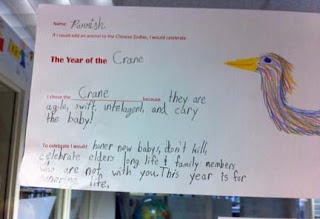 Name: Pannish
If I could add an animal to the Chinese Zodiac, I would celebrate
The Year of the Crane
I chose the Crane because they are
agile, swift, intelagent, and cary
the baby!
To celebrate I would honer new babys, don't kill,
celebrate elders long life & family members
who are not with you. This year is for
honering life.